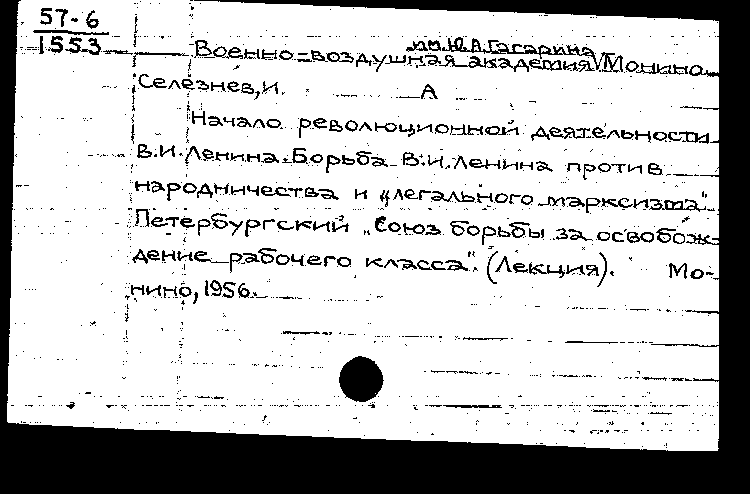 57-6
1553
им. Ю.А. Гагарина
Военно-воздушная академия Монино
Селезнев, И. А
Начало революционной деятельности
В.И. Ленина. Борьба В.И. Ленина против
народничества и „легального марксизма"
Петербургский „Союз борьбы за освобож-
дение рабочего класса". (Лекция). Мо-
нино, 1956.